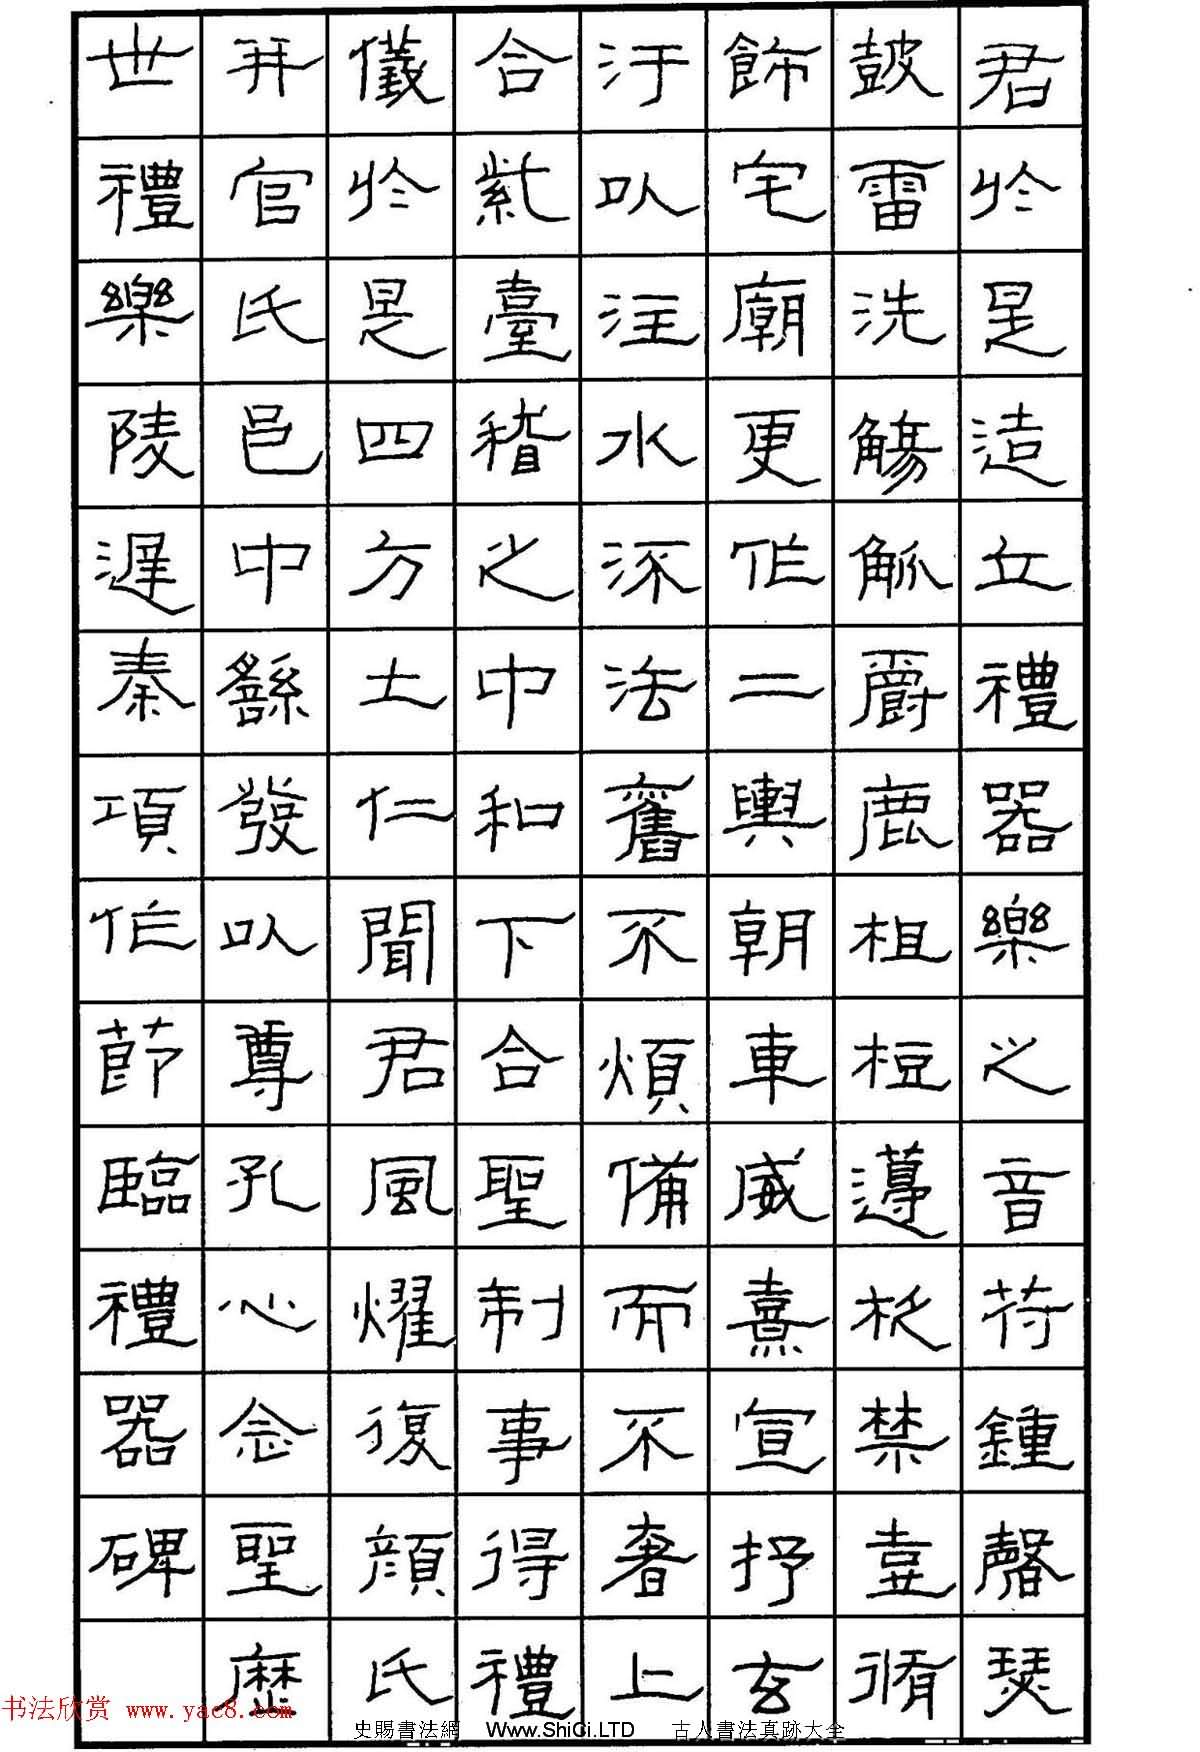 君於是造立禮器樂之音符鍾磬瑟
鼓雷洗觴觚爵鹿柤梪籩柉禁壼脩
飾宅廟更作二輿朝車威熹宣抒玄
汙以注水流法舊不煩備而不奢上
合紫臺稽之中和下合聖制事得禮
儀於是四方土仁聞君風燿復顏氏
并官氏邑中繇發以尊孔心念聖歷
世禮樂陵遲秦項作莭臨禮器碑
书法欣赏 www.yac8.com
史賜書法網 Www.ShiCi.LTD 古人書法真跡大全